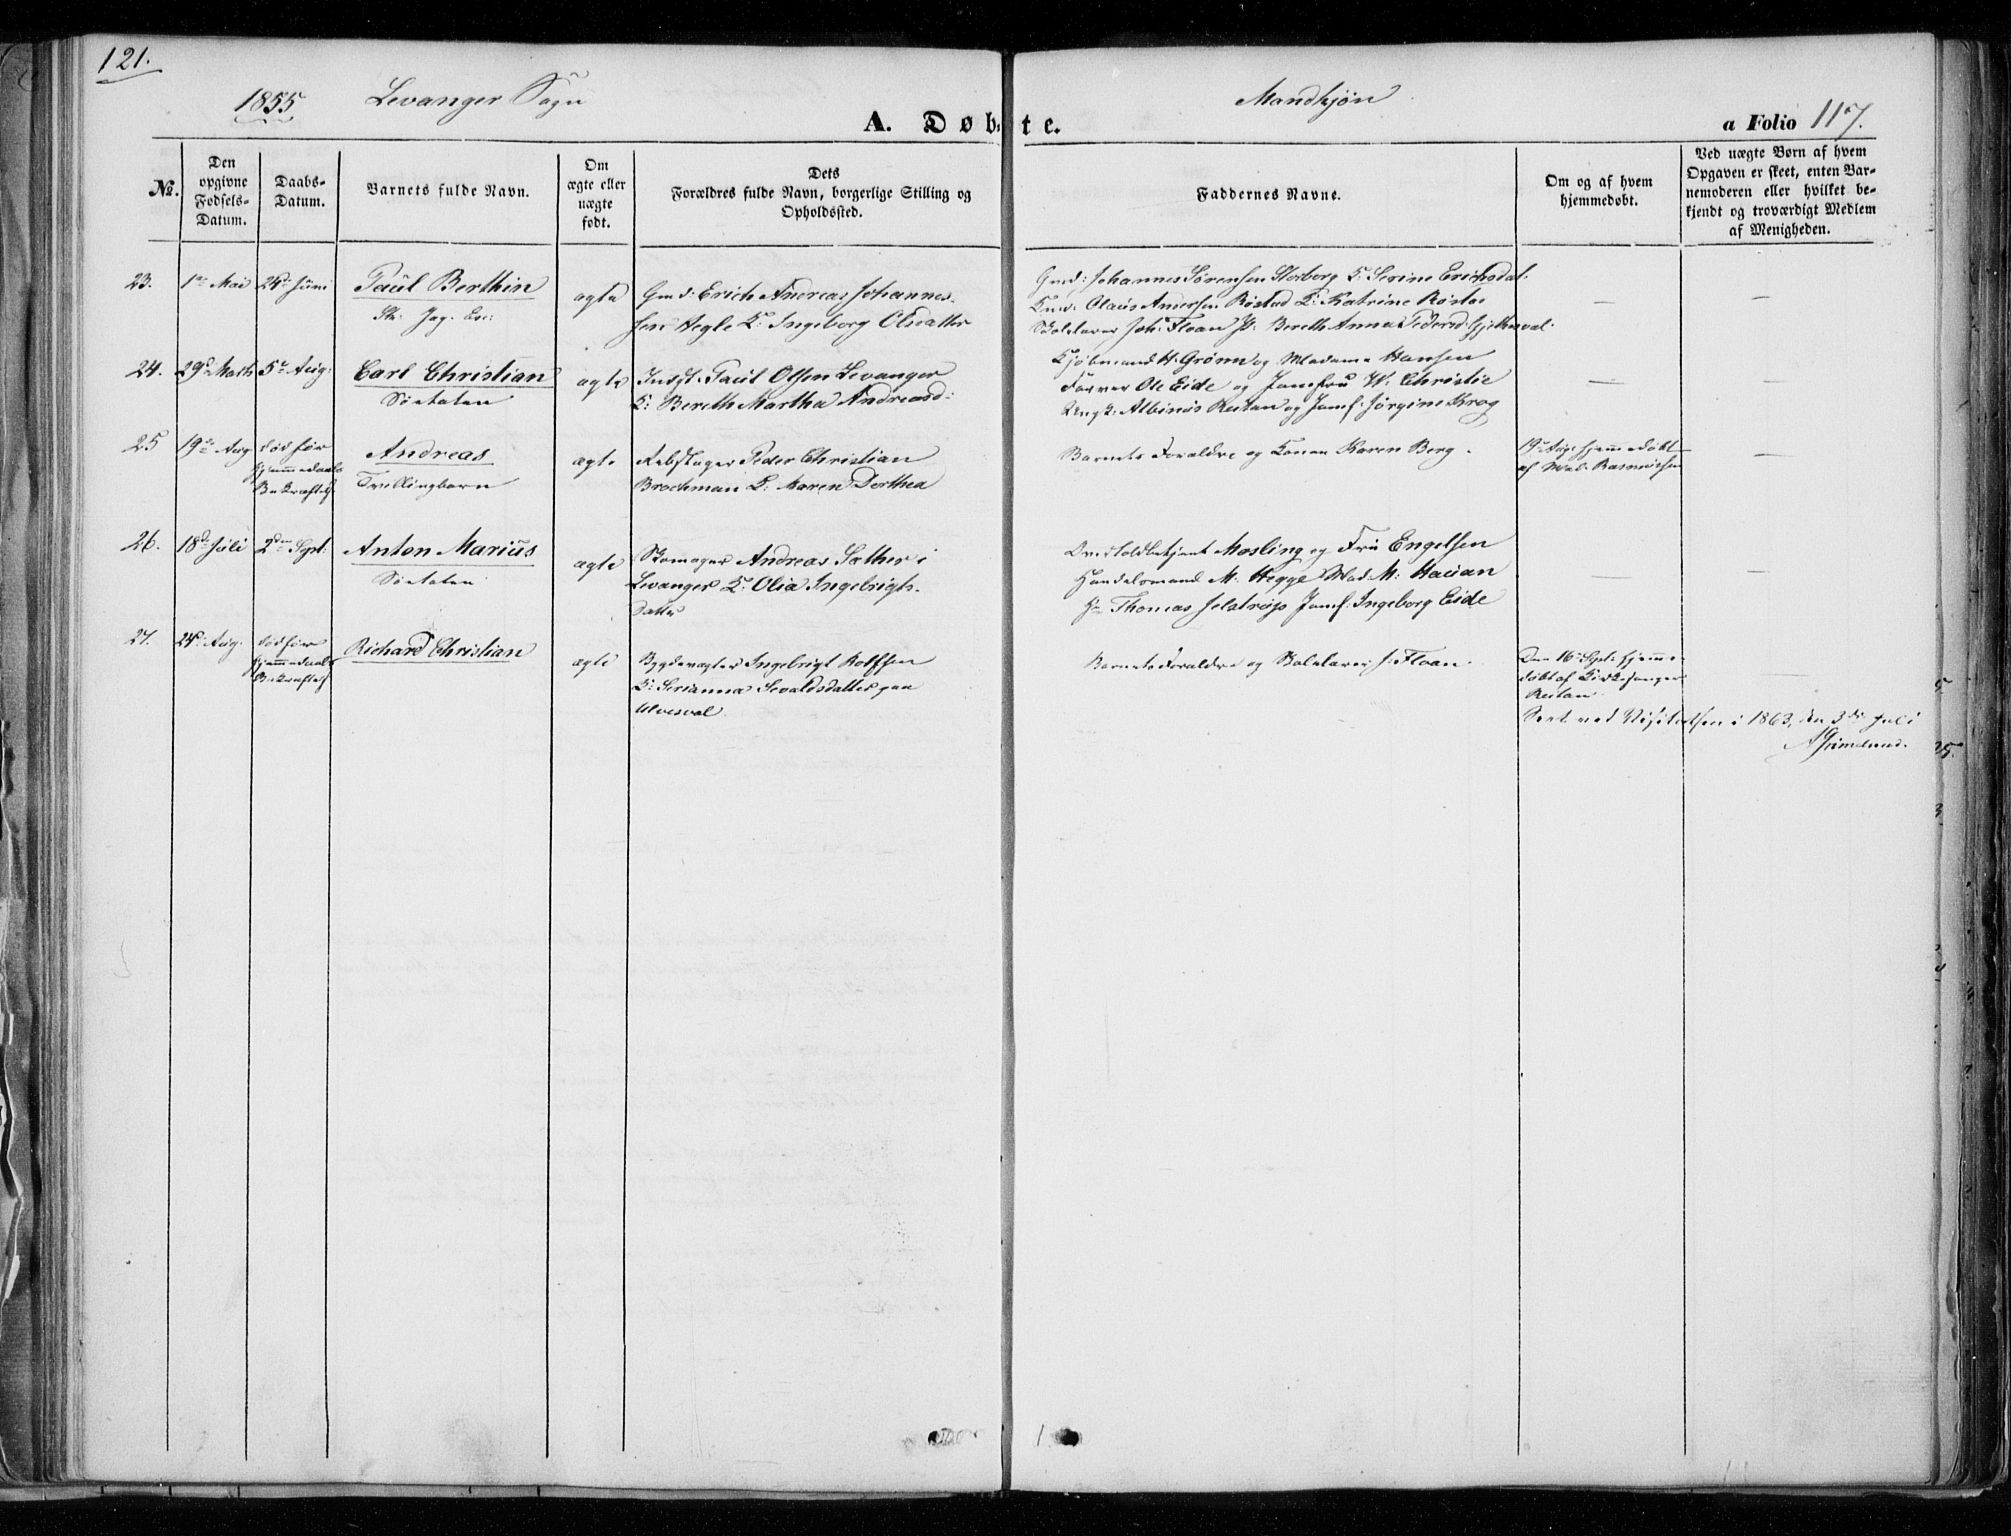 121.
1855 Levanger Sogn Mandkjøn
A. Døbte. a Folio 117.
No.
Den opgivne Fødsels-Datum.
Daabs-Datum.
Barnets fulde Navn.
Om ægte eller uægte født.
Dets Forældres fulde Navn, borgerlige Stilling og Opholdssted.
Faddernes Navne.
Om og af hvem hjemmedøbt.
Ved uægte Børn af hvem Opgaven er skeet, enten Barnemoderen eller hvilket bekjendt og troværdigt Medlem af Menigheden.
23. 1ste Mai 24de Juni Paul Berthin ægte Gmd: Erich Andreas Johannes-
sen Hegle K: Ingeborg Olsdatter
Gmd: Johannes Sørensen Storborg K: Serine Erichsdat.
Claus Andersen Røstad K: Katrine Røstad
Skolelærer Joh: Floan P: Bereth Anna Pedersd:
— —
24. 29de Marts 5te Aug: Carl Christian ægte Indst: Paul Olsen Levanger
Søetaten
K: Bereth Martha Andreasd:
Kjøbmand H. Grønn og Madame Hansen
Farver Ole Eide og Jomfru W. Christie
Ungk: Albinus Reitan og Jomf: Jørgine Krog
— —
25 19de Aug død før
hjemmedaabs
Bekræftels
Andreas
Tvillingbarn
ægte Rebslager Peder Christian
Brochman K: Maren Dorthea
Barnets Forældre og Konen Karen Berg.
19de Aug: hjemmedøbt
af Mad: Rasmussen
—
26. 18de Juli 2den Sept: Anton Marius
Søetaten
ægte Skomager Andreas Sæther i
Levanger K: Olia Ingebrigts-
datter
Overtoldbetjent Mosling og Fru Engelsen
Handelsmand M. Hegge Mad M: Hauan
Hr Thomas Jelstrup Jomf: Ingeborg Eide
— —
27. 24de Aug. død før
hjemmedaabs
Bekræftels
Richard Christian ægte Bygdevægter Ingebrigt Rolfsen
K: Serianna Sevaldsdatter paa
Barnets Forældre og Skolelærer J: Floan
Den 16de Sept: hjemme-
døbt af Kirkesanger
Reitan
—
Seet ved Visitatsen i 1863, den 3die Juli
A Grimelund.